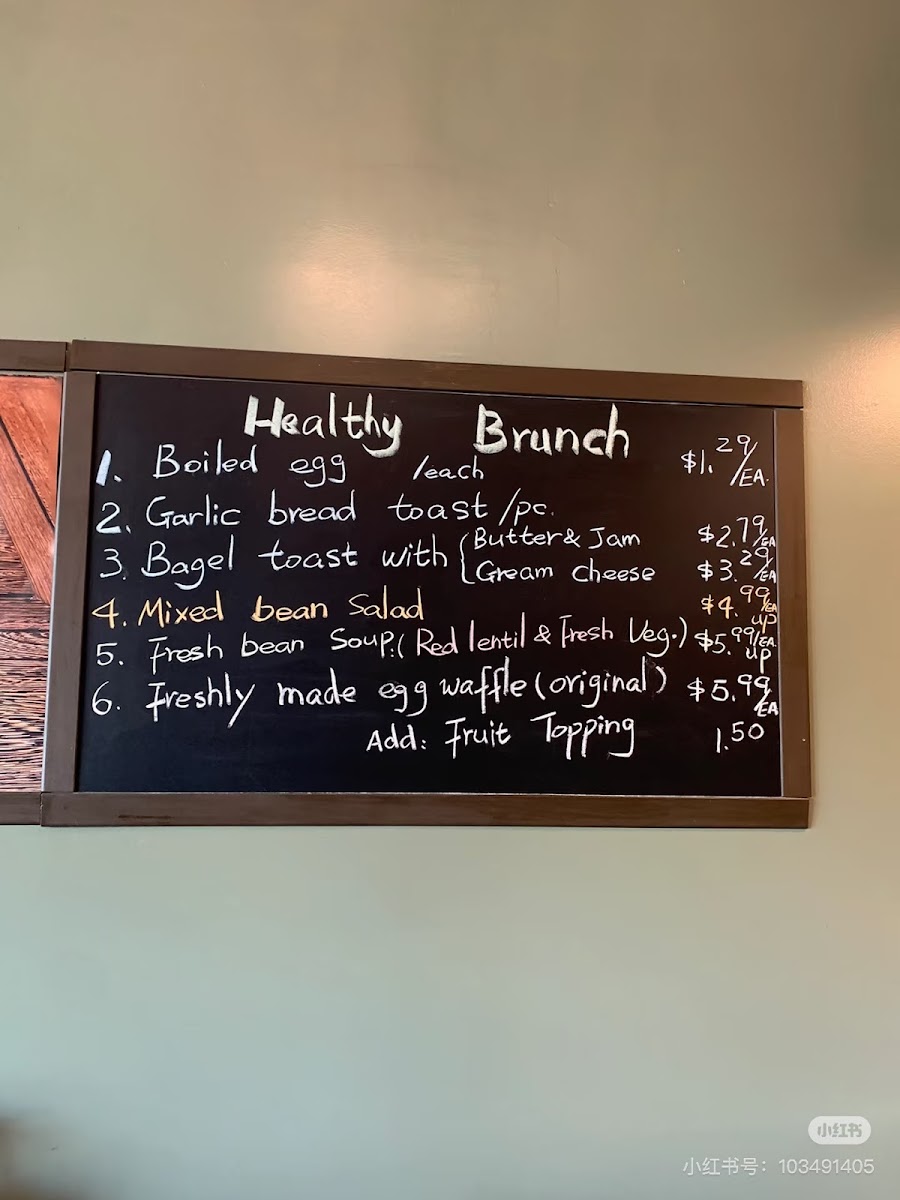 Healthy Brunch
1. Boiled egg /each $1.29/EA.
2. Garlic bread toast /pc.
3. Bagel toast with { Butter & Jam $2.79/EA
Cream cheese $3.29/EA
4. Mixed bean Salad $4.99/EA up
5. Fresh bean Soup. (Red lentil & Fresh Veg.) $5.99/EA. up
6. Freshly made egg waffle (original) $5.99/EA
Add: Fruit Topping 1.50
小红书
小红书号: 103491405